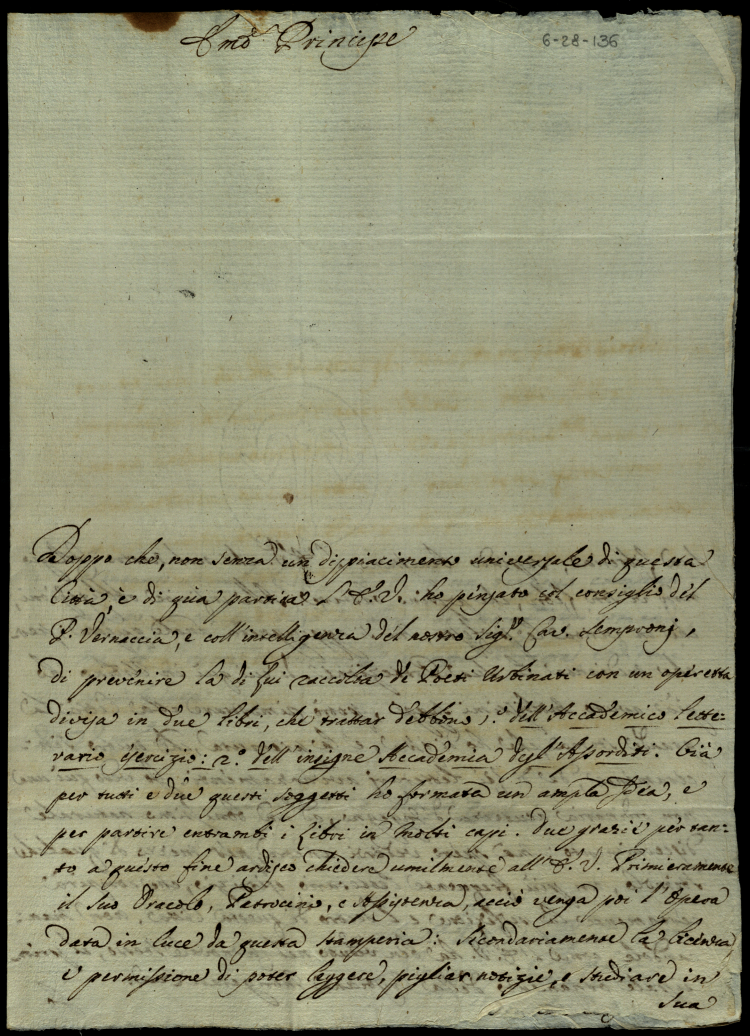 Emo Principe
6-28-136
Doppo che, non senza un dispiacimento universale di questa
Città, è di qua partita l'E. V. ho pensato col consiglio del
P. Vernaccia, e coll'intelligenza del nostro Sigr. Cav. Semproni,
di prevenire la di lui raccolta de Poeti Urbinati con un operetta
divisa in due libri, che trattar debbono, 1.o dell'Accademico lette-
rario esercizio: 2.o dell'insigne Accademia degl'Assorditi. Già
per tutti e due questi soggetti ho formata un ampla Idea, e
per partire entrambi i libri in molti capi. Due grazie per tan-
to, a questo fine ardisco chiedere umilmente all'E. V. Primieramente
il suo Oracolo, Patrocinio, e Assistenza, acciò venga poi l'Opera
data in luce da questa stamperia: secondariamente la licenza,
e permissione di poter leggere, pigliar notizie, e studiare in
sua